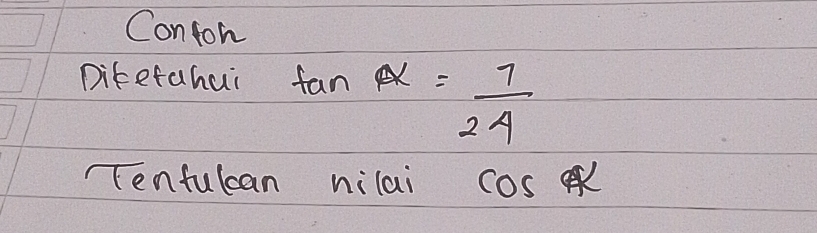 Contoh
Diketahui tan α = 7/24
Tentukan nilai cos α